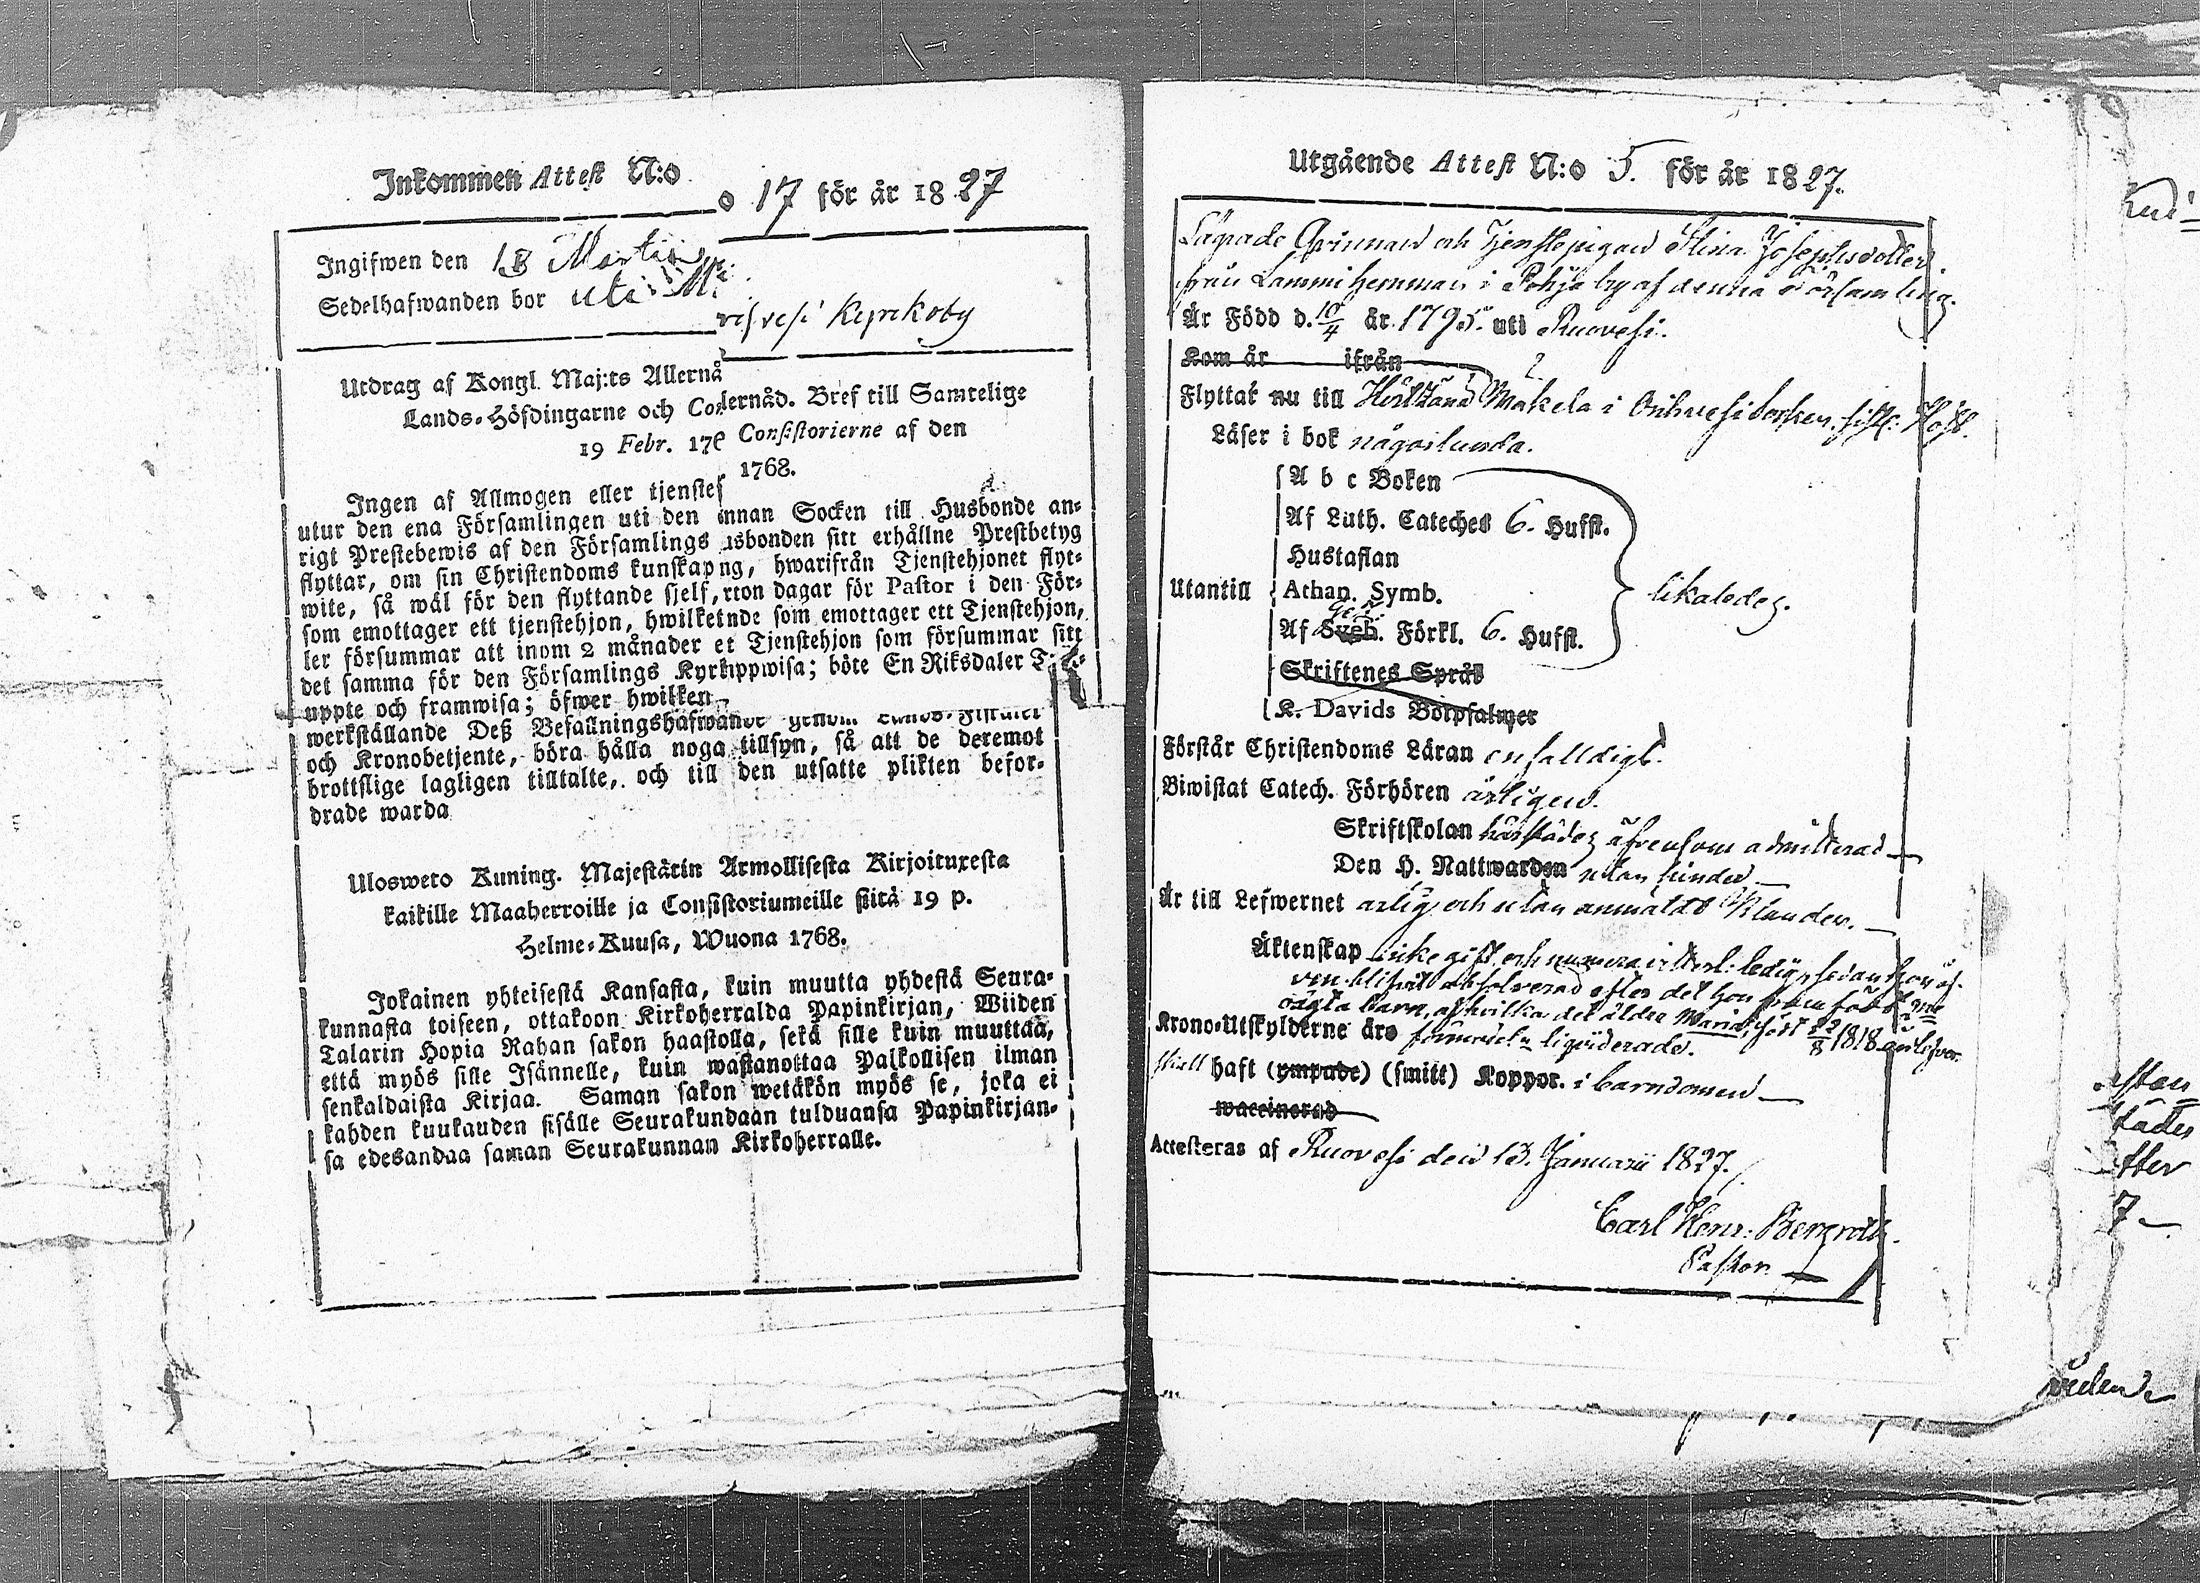 Inkommen Attest N:o
o 17 för år 1827
Ingifwen den 18 Martii
Sedelhafwanden bor uti
vesi Kyrckoby
Utdrag af Kongl. Maj:ts Allernå
lernåd. Bref till Samtelige
Lands-Höfdingarne och Con
Consistorierne af den
19 Febr. 176
1768.
Ingen af Allmogen eller tjenstef
utur den ena Församlingen uti den
annan Socken till Husbonde an-
rigt Prestebewis af den Församlings
usbonden sitt erhållne Prestbetyg
flyttar, om sin Christendoms kunskap
ng, hwarifrån Tjenstehjonet flyt-
wite, så wäl för den flyttande sjelf,
rton dagar för Pastor i den För-
som emottager ett tjenstehjon, hwilket
nde som emottager ett Tjenstehjon,
ler försummar att inom 2 månader
et Tjenstehjon som försummar sitt
det samma för den Församlings Kyrk
uppwisa; böte En Riksdaler
uppte och framwisa; öfwer hwilken
werkställande Deß Befallningshafwande genom Lands-Fiskaler
och Kronobetjente, böra hålla noga tillsyn, så att de deremot
brottslige lagligen tilltalte, och till den utsatte plikten befor-
drade warda
Ulosweto Kuning. Majestätin Armollisesta Kirjoituxesta
kaikille Maaherroille ja Consistoriumeille siitä 19 p.
Helme-Kuusa, Wuona 1768.
Jokainen yhteisestä Kansasta, kuin muutta yhdestä Seura-
kunnasta toiseen, ottakoon Kirkoherralda Papinkirjan, Wiiden
Talarin Hopia Rahan sakon haastolla, sekä sille kuin muuttaa,
että myös sille Isännelle, kuin wastanottaa Palkollisen ilman
senkaldaista Kirjaa. Saman sakon wetäkön myös se, joka ei
kahden kuukauden sisälle Seurakundaan tulduansa Papinkirjan-
sa edesandaa saman Seurakunnan Kirkoherralle.
Utgående Attest N:o 5. för år 1827.
Lägrade Qvinnan och Tjenstepigan Stina Josephsdotter
från Lammi hemman i Pohja by af denna Församling.
Är Född d. 10/4 år 1795. uti Ruovesi.
Kom år ifrån
Flyttat nu till Mäkelä i Orihvesi Socken
Läser i bok någorlunda.
A b c Boken
Af Luth. Cateches 6. Hufst.
Hustaflan
Utantill
Athan. Symb.
likaledes.
Af Sveb. Förkl. 6. Hufst.
Skriftenes Språk
K. Davids Botpsalmer
Förstår Christendoms Läran enfalldigt.
Biwistat Catech. Förhören årligen.
Skriftskolan härstädes äfvensom admitterad
Den H. Nattwarden utan hinder
Är till Lefwernet ärlig och utan anmäldt klander.
Äktenskap icke gift, och numera ledig, sedan hon äf-
ven blifvit absolverad efter det hon födt
oägta barn, af hvilka det äldre Maria, född 22/8 1818
Krono-Utskylderne äro liqviderade.
haft (ympade) (smitt) Koppor. i barndomen
waccinerad
Attesteras af Ruovesi den 13. Januarii 1827.
Carl Henr. Bergroth.
Pastor.